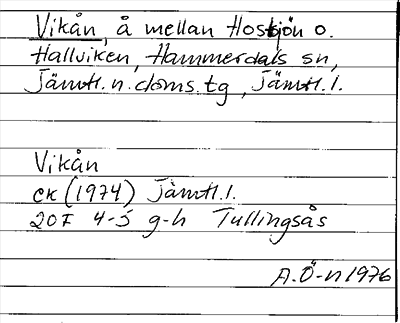 Vikån, å mellan Hostjön o.
Hallviken, Hammerdals sn,
Jämtl. n. doms. tg, Jämtl. l.
Vikån
ek (1974) Jämtl. l.
20F 4-5 g-h Tullingsås
A.Ö-n 1976